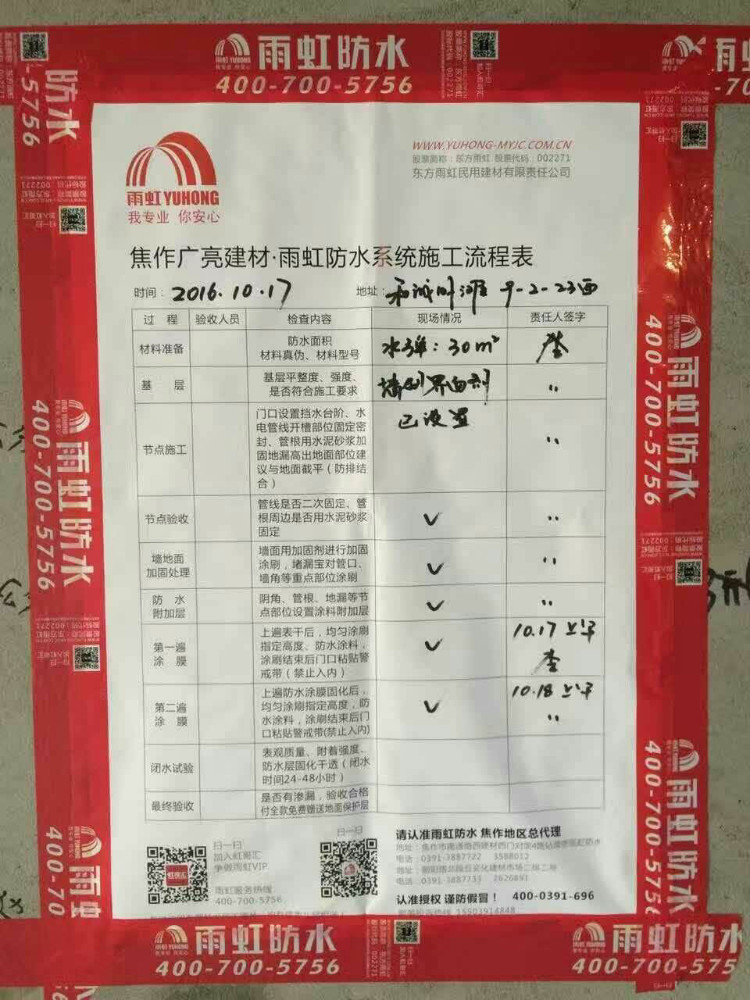 雨虹防水
400-700-5756
雨虹YUHONG
我专业 你安心
WWW.YUHONG-MYJC.COM.CN
股票简称：东方雨虹 股票代码：002271
东方雨虹民用建材有限责任公司
焦作广亮建材·雨虹防水系统施工流程表
时间：2016.10.17 地址：
过程 验收人员 检查内容 现场情况 责任人签字
材料准备
防水面积
材料真伪、材料型号
30m²
基层
基层平整度、强度、
是否符合施工要求
节点施工
门口设置挡水台阶、水
电管线开槽部位固定密
封、管根用水泥砂浆加
固地漏高出地面部位建
议与地面截平（防排结
合）
已设置
节点验收
管线是否二次固定、管
根周边是否用水泥砂浆
固定
墙地面
加固处理
墙面用加固剂进行加固
涂刷，堵漏宝对管口、
墙角等重点部位涂刷
防水
附加层
阴角、管根、地漏等节
点部位设置涂料附加层
第一遍
涂膜
上遍表干后，均匀涂刷
指定高度、防水涂料，
涂刷结束后门口粘贴警
戒带（禁止入内）
10.17 上午
第二遍
涂膜
上遍防水涂膜固化后，
均匀涂刷指定高度，防
水涂料，涂刷结束后门
口粘贴警戒带(禁止入内)
10.18 上午
闭水试验
表观质量、附着强度、
防水层固化干透（闭水
时间24-48小时）
最终验收
是否有渗漏，验收合格
付全款免费赠送地面保护层
扫一扫
加入虹哥汇
争做雨虹VIP
雨虹服务热线
400-700-5756
扫一扫
请认准雨虹防水 焦作地区总代理
电话：0391-3887722 3568012
认准授权 谨防假冒！ 400-0391-696
雨虹防水
400-700-5756
雨虹防水
400-700-5756
雨虹防水
400-700-5756
雨虹防水
400-700-5756
雨虹防水